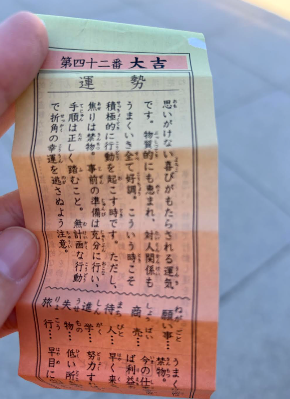 第四十二番 大吉
運勢
思いがけない喜びがもたらされる運気
です。物質的にも恵まれ、対人関係も
うまくいき全て好調。こういう時こそ
積極的に行動を起こす時です。ただし、
焦りは禁物。事前の準備は充分に行い、
手順は正しく踏むこと。無計画な行動
で折角の幸運を逃さぬよう注意。
願い事…うまく
禁物。
商売…今の仕
ば利益
待人…早く来
進学…努力す
失物…低い所
旅行…早目に